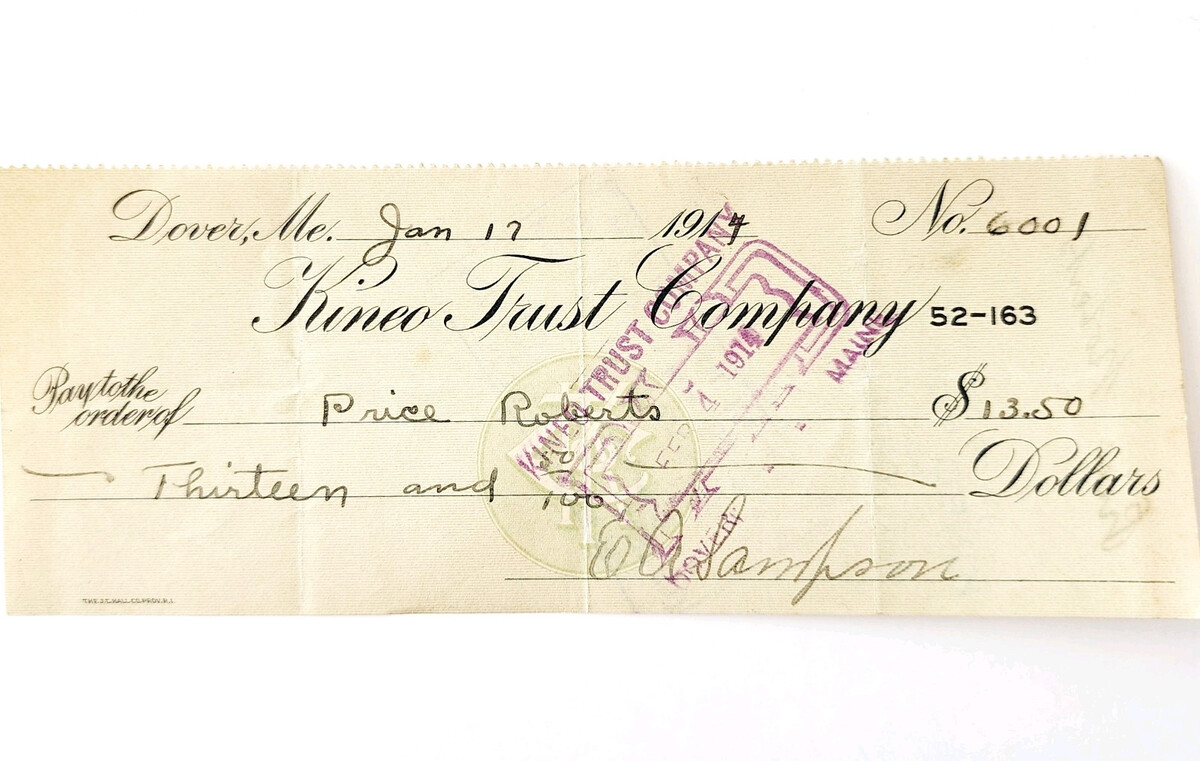 Dover, Me. Jan 17 1914 No. 6001
Kineo Trust Company 52-163
Pay to the order of Price Roberts $13.50
Thirteen and 50/100 Dollars
Sampson
KINEO TRUST COMPANY
PAID
FEB 4 1914
DOVER, MAINE
THE J.C. HALL CO. PROV. R.I.